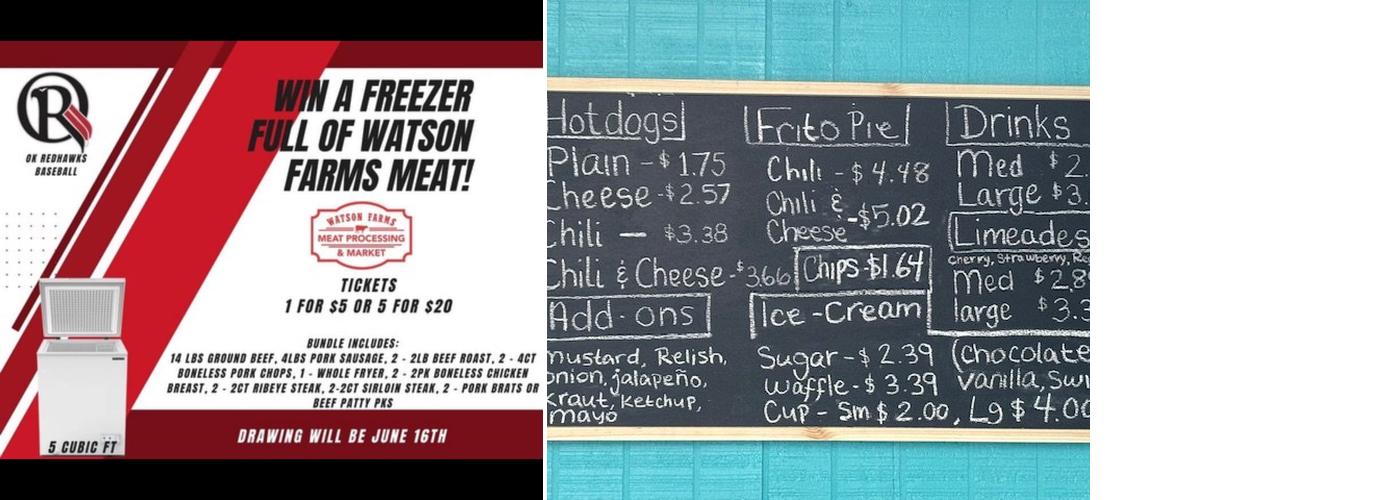 OK REDHAWKS
BASEBALL
WIN A FREEZER
FULL OF WATSON
FARMS MEAT!
WATSON FARMS
MEAT PROCESSING
& MARKET
TICKETS
1 FOR $5 OR 5 FOR $20
BUNDLE INCLUDES:
14 LBS GROUND BEEF, 4LBS PORK SAUSAGE, 2 - 2LB BEEF ROAST, 2 - 4CT
BONELESS PORK CHOPS, 1 - WHOLE FRYER, 2 - 2PK BONELESS CHICKEN
BREAST, 2 - 2CT RIBEYE STEAK, 2-2CT SIRLOIN STEAK, 2 - PORK BRATS OR
BEEF PATTY PKS
5 CUBIC FT
DRAWING WILL BE JUNE 16TH
Hotdogs
Plain - $1.75
Cheese - $2.57
Chili - $3.38
Chili & Cheese - $3.66
Add-ons
mustard, Relish,
onion, jalapeño,
kraut, ketchup,
mayo
Frito Pie
Chili - $4.48
Chili &
Cheese - $5.02
Chips - $1.64
Ice-Cream
Sugar - $2.39
Waffle - $3.39
Cup - Sm $2.00, Lg $4.00
Drinks
Med $2.
Large $3.
Limeades
cherry, Strawberry,
Med $2.8
large $3.3
(Chocolate
Vanilla,